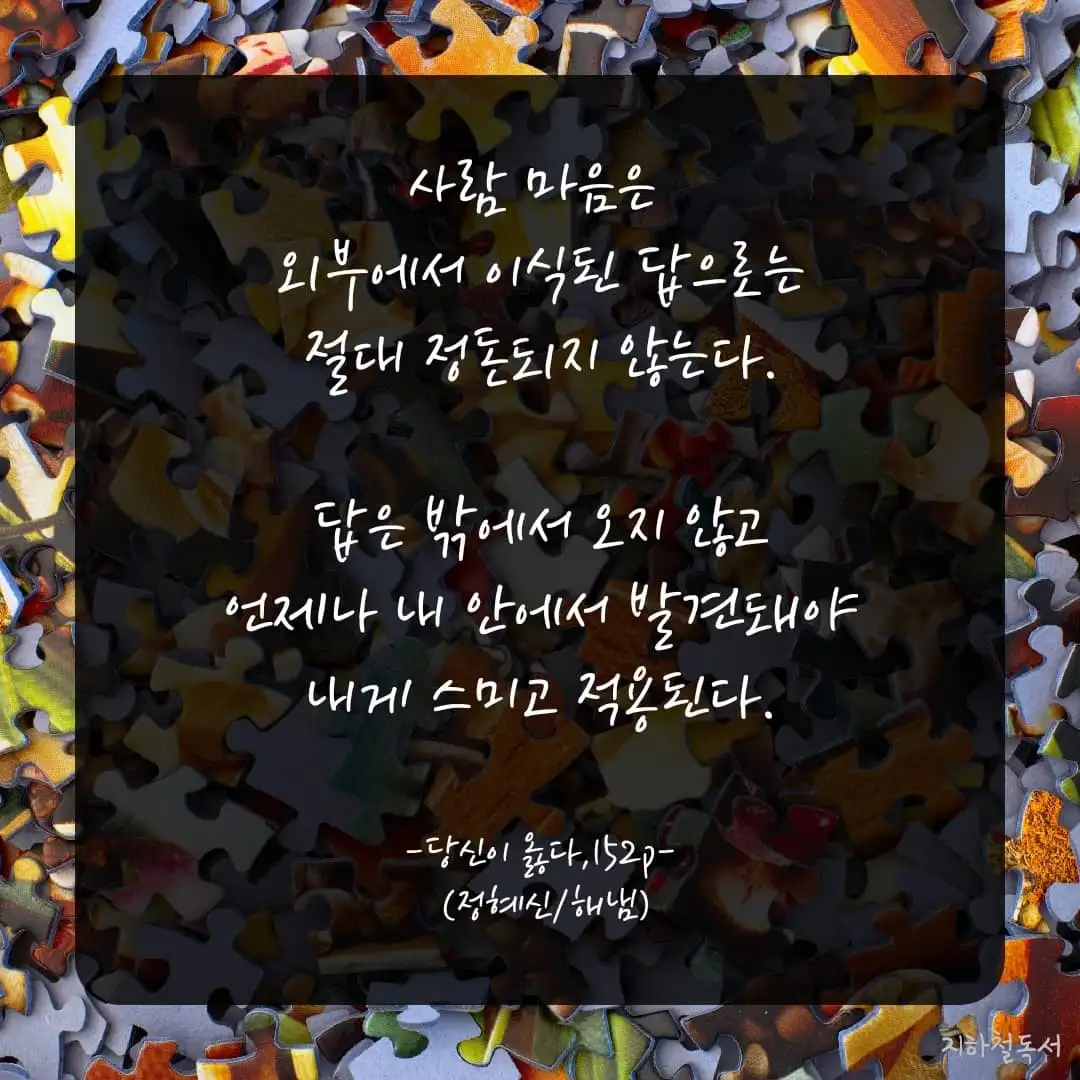 사람 마음은
외부에서 이식된 답으로는
절대 정돈되지 않는다.
답은 밖에서 오지 않고
언제나 내 안에서 발견돼야
내게 스미고 적용된다.
-당신이 옳다,152p-
(정혜신/해냄)
지하철독서